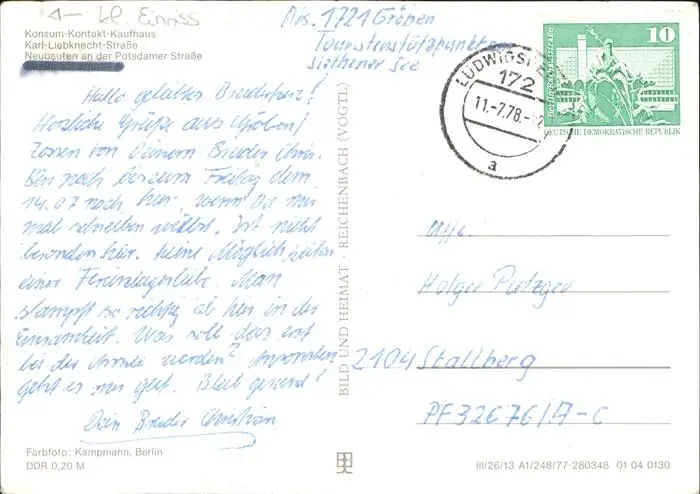 kl. Einriss
Konsum-Kontakt-Kaufhaus
Karl-Liebknecht-Straße
Neubauten an der Potsdamer Straße
Abs. 1721 Gröben
Touristenstützpunkt am
Siethener See
Hallo geliebtes Bruderherz!
Herzliche Grüße aus Gröben/
Zossen von Deinem Bruder Chris.
Bin noch bis zum Freitag dem
14.07 noch hier, wenn Du mir
mal schreiben willst. Ist nicht
besonders hier. Keine Möglichkeiten
einer Ferienlagerliebe. Man
stumpft so richtig ab hier in der
Einsamkeit. Was soll das erst
bei der Armee werden? Ansonsten
geht es mir gut. Bleib gesund!
Dein Bruder Christian
Farbfoto: Kampmann, Berlin
DDR 0,20 M
BILD UND HEIMAT · REICHENBACH (VOGTL)
172
11.-7.78.-
a
Berlin, Rathausstraße
10
DEUTSCHE DEMOKRATISCHE REPUBLIK
Uffz.
Holger Putzger
2104 Stallberg
PF 32676/A-C
III/26/13 A1/248/77-280348 01 04 0130